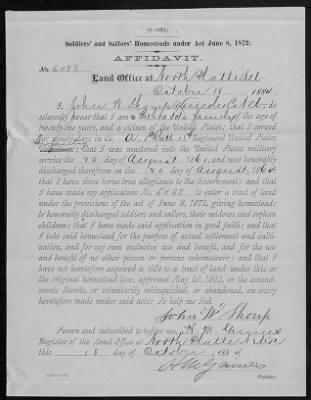 Soldiers' and Sailors' Homesteads under Act June 8, 1872.
AFFIDAVIT.
No. 6088
Land Office at North Platte Neb
October 18 1884
I, John W Thorp of Lincoln Co Neb do
solemnly swear that I am of the age of
twenty-one years, and a citizen of the United States; that I served
for in Co. Regiment United States
; that I was mustered into the United States military
service the 20 day of August, 186 , and was honorably
discharged therefrom on the 20 day of August, 1864;
that I have since borne true allegiance to the Government; and that
I have made my application No. 6088 to enter a tract of land
under the provisions of the act of June 8, 1872, giving homesteads
to honorably discharged soldiers and sailors, their widows and orphan
children; that I have made said application in good faith; and that
I take said homestead for the purpose of actual settlement and cultivation,
and for my own exclusive use and benefit, and for the use
and benefit of no other person or persons whomsoever; and that I
have not heretofore acquired a title to a tract of land under this or
the original homestead law, approved May 20, 1862, or the amendments
thereto, or voluntarily relinquished, or abandoned, an entry
heretofore made under said acts: So help me God.
John W Thorp
Sworn and subscribed to before me,
Register of the Land Office at North Platte Neb
this 18 day of October 1884
Register.